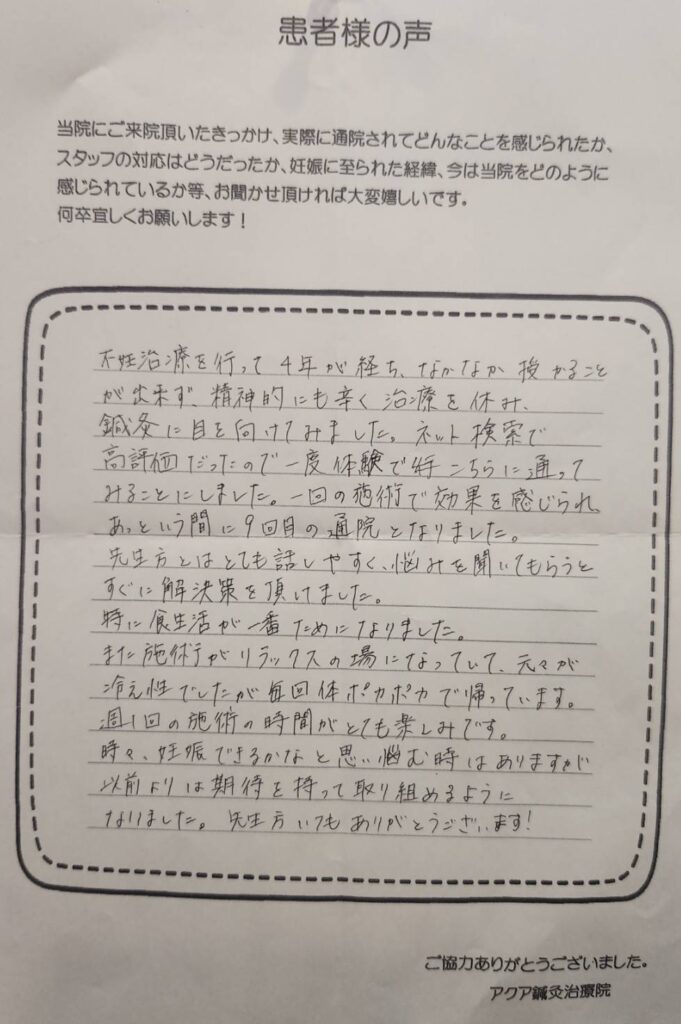 患者様の声
当院にご来院頂いたきっかけ、実際に通院されてどんなことを感じられたか、
スタッフの対応はどうだったか、妊娠に至られた経緯、今は当院をどのように
感じられているか等、お聞かせ頂ければ大変嬉しいです。
何卒宜しくお願いします！
不妊治療を行って4年が経ち、なかなか授かること
が出来ず、精神的にも辛く治療を休み、
鍼灸に目を向けてみました。ネット検索で
高評価だったので一度体験で こちらに通って
みることにしました。一回の施術で効果を感じられ、
あっという間に9回目の通院となりました。
先生方とはとても話しやすく、悩みを聞いてもらうと
すぐに解決策を頂けました。
特に食生活が一番ためになりました。
また施術がリラックスの場になっていて、元々が
冷え性でしたが毎回体ポカポカで帰っています。
週1回の施術の時間がとても楽しみです。
時々、妊娠できるかなと思い悩む時はありますが
以前よりは期待を持って取り組めるように
なりました。先生方いつもありがとうございます！
ご協力ありがとうございました。
アクア鍼灸治療院